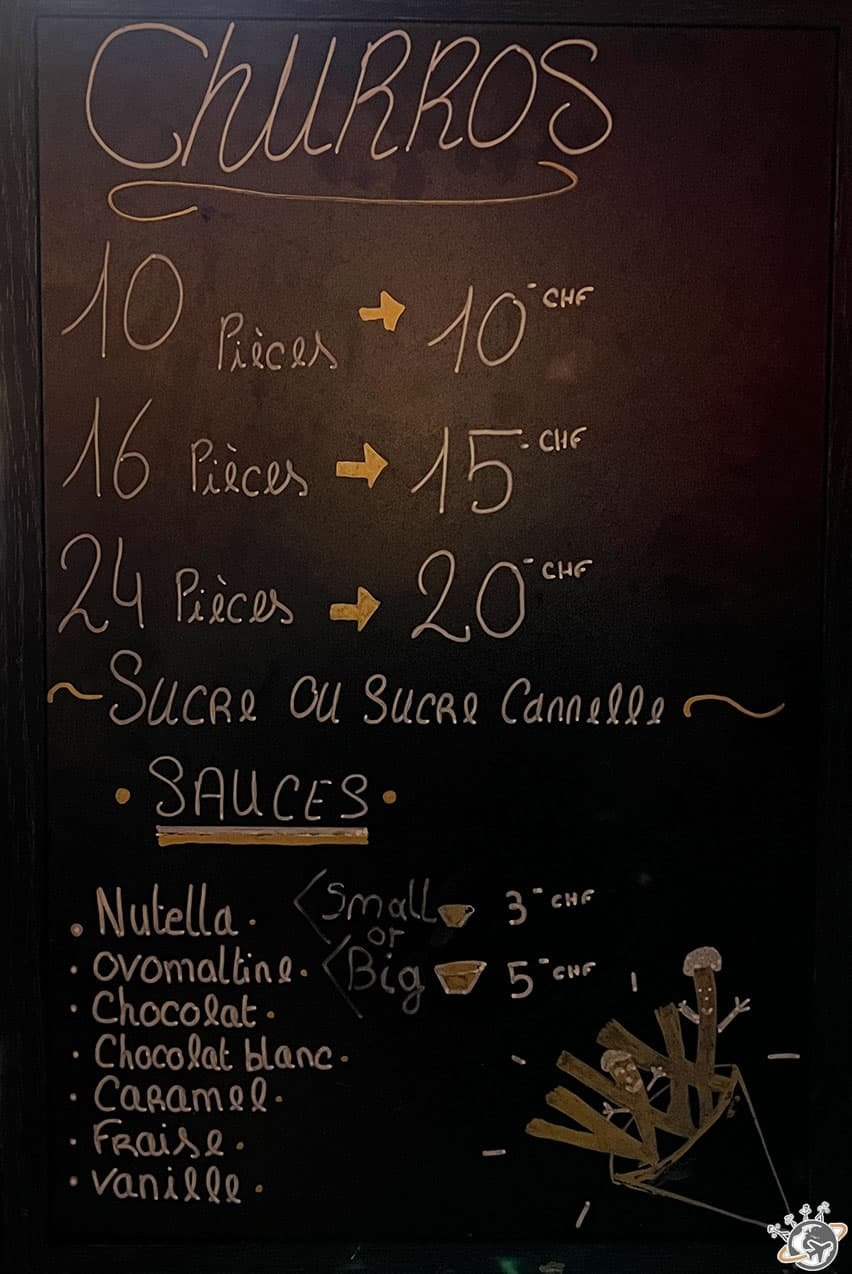 ChURROS
10 Pièces → 10.- CHF
16 Pièces → 15.- CHF
24 Pièces → 20.- CHF
~ Sucre ou sucre Cannelle ~
• SAUCES •
• Nutella •
< Small 3.- CHF
or
• Ovomaltine •
< Big 5.- CHF
• Chocolat •
• Chocolat blanc •
• Caramel •
• Fraise •
• Vanille •